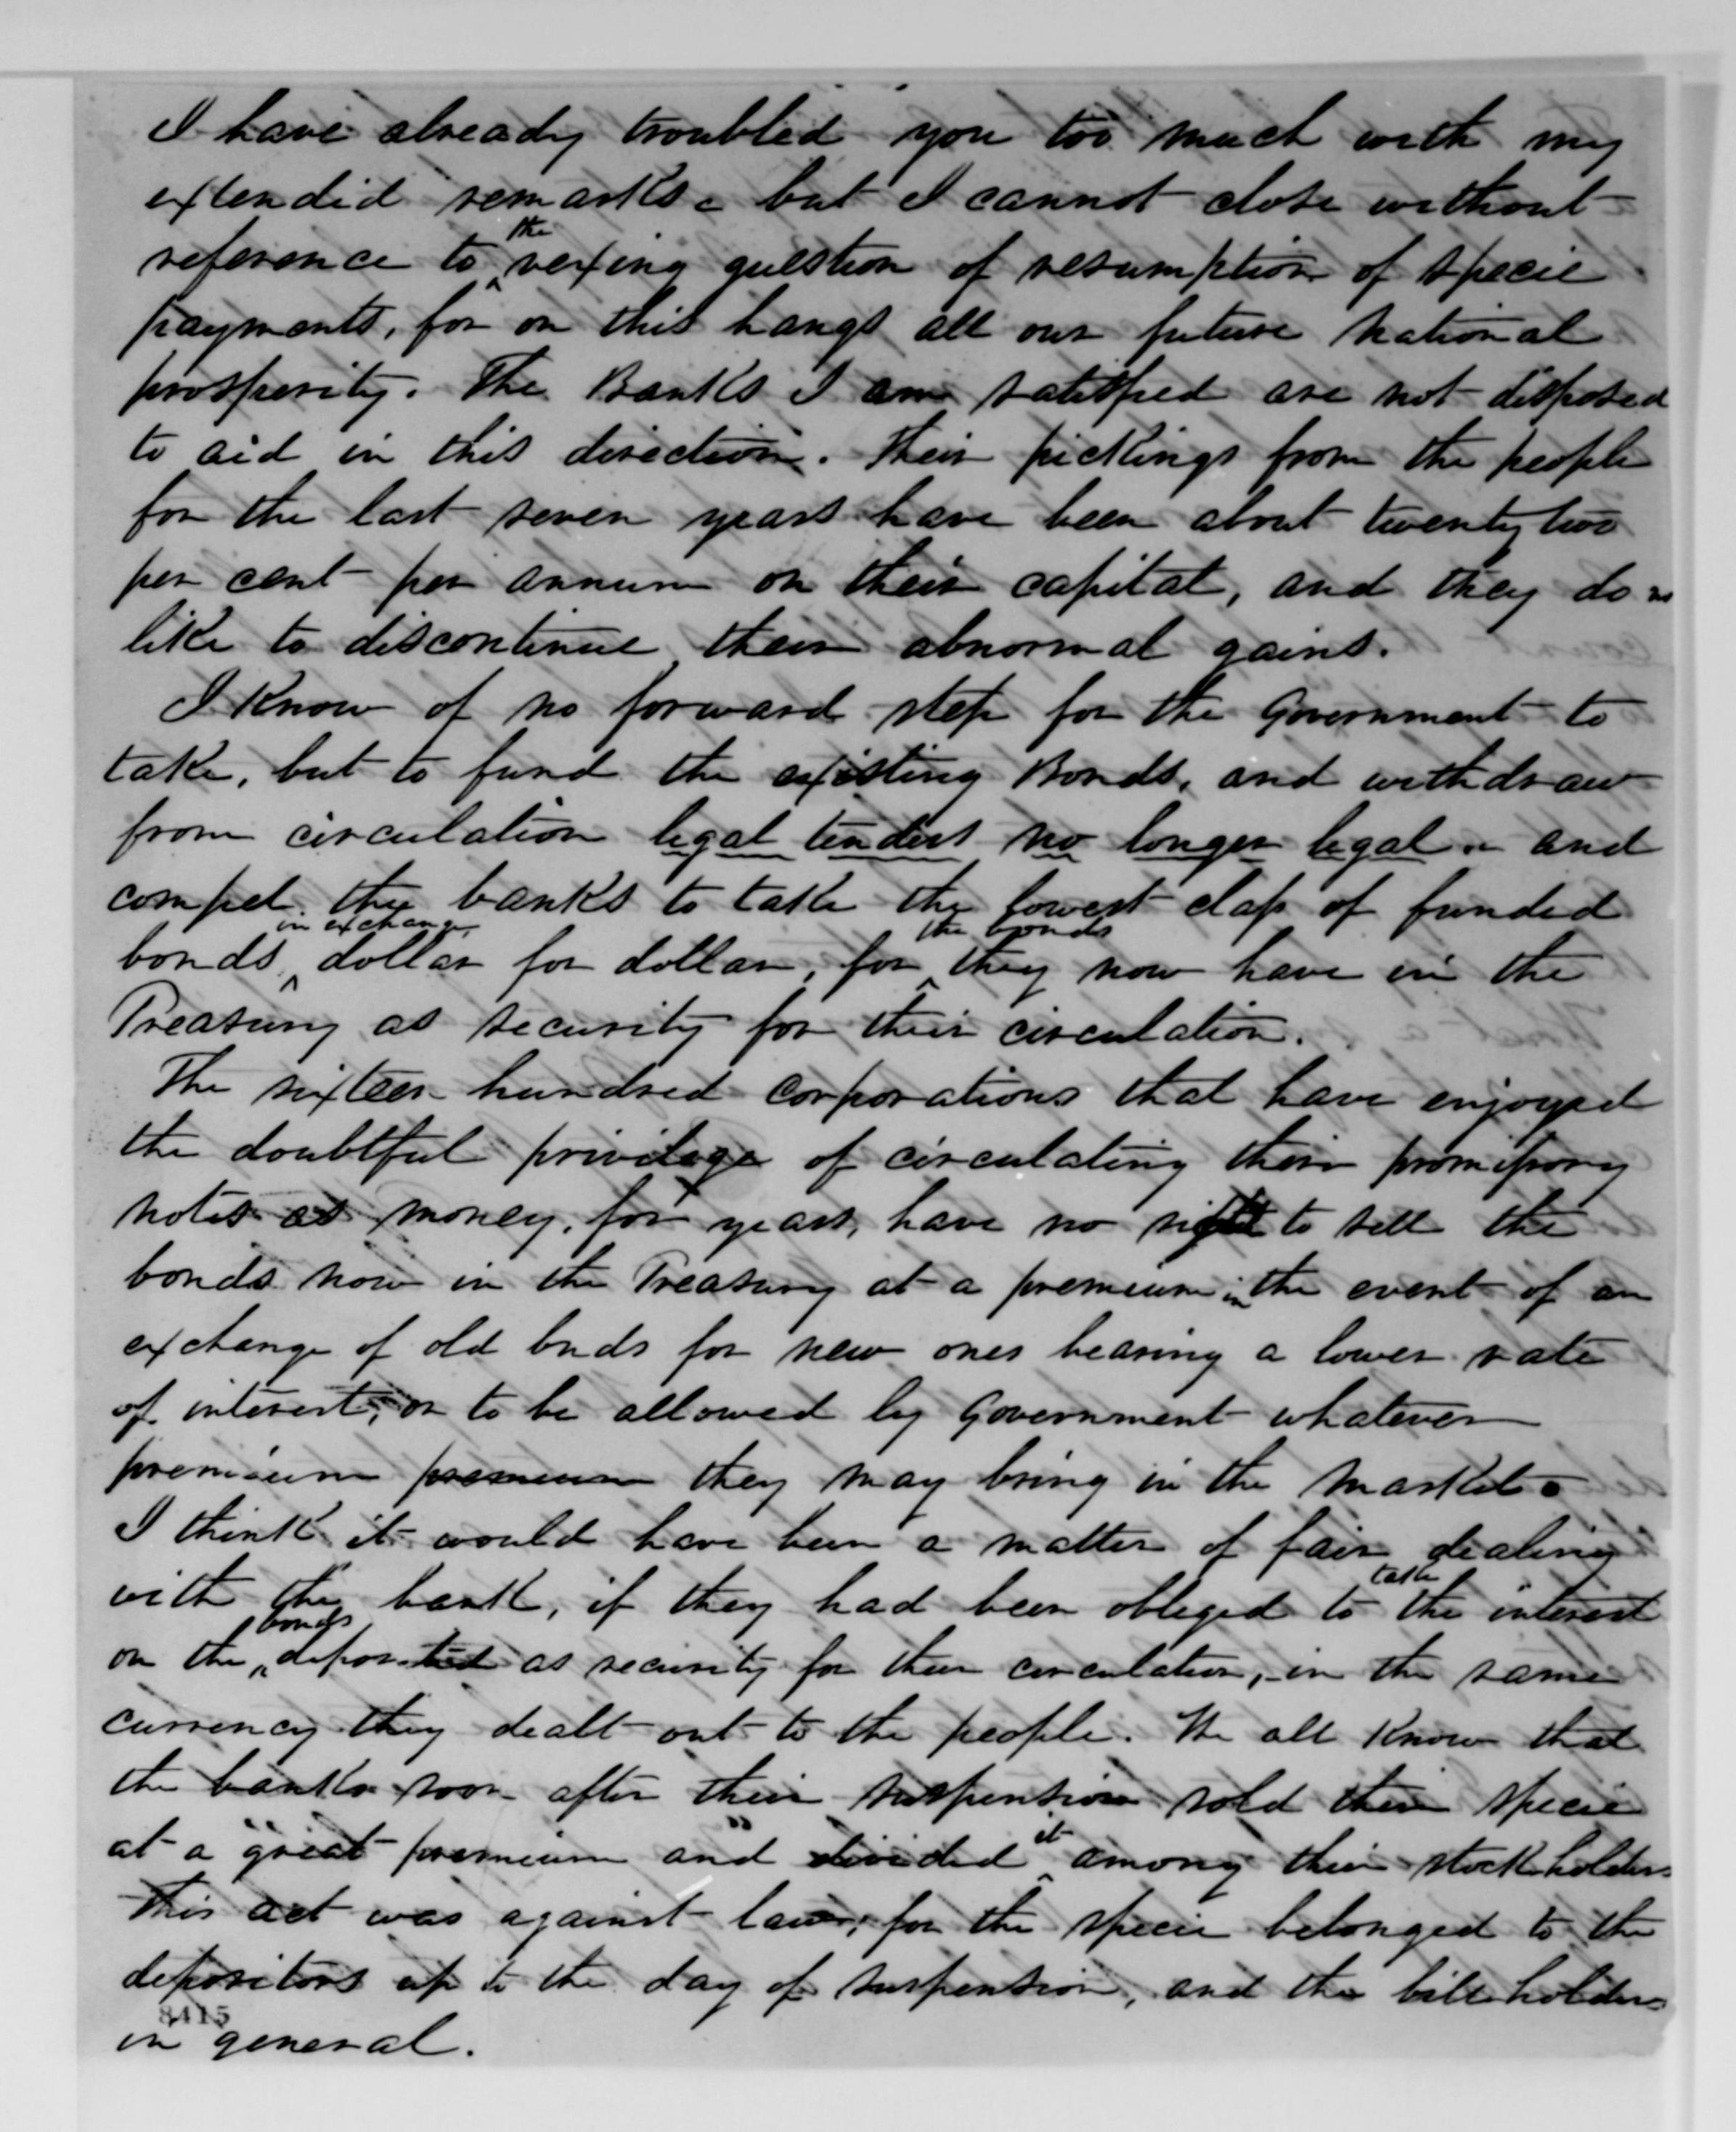 I have already troubled you too much with my
extended remarks - but I cannot close without
reference to the vexing question of resumption of specie
payments, for on this hangs all our future national
prosperity. The Banks I am satisfied are not disposed
to aid in this direction. Their pickings from the people
for the last seven years have been about twenty two
per cent per annum on their capital, and they do
like to discontinue their abnormal gains.
I Know of no forward step for the Government to
take, but to fund the existing Bonds, and withdraw
from circulation legal tenders no longer legal - and
compel the banks to take the lowest class of funded
bonds in exchange dollar for dollar, for the bonds they now have in the
Treasury as security for their circulation.
The sixteen hundred corporations that have enjoyed
the doubtful privilege of circulating their promissory
notes as money, for years, have no right to sell the
bonds now in the Treasury at a premium in the event of an
exchange of old bnds for new ones bearing a lower rate
of interest, or to be allowed by Government whatever
premium premium they may bring in the market -
I think it would have been a matter of fair dealing
with the bank, if they had been obliged to take the interest
on the bonds deposited as security for their circulation, - in the same
currency they dealt out to the people. We all Know that
the banks soon after their suspension sold their specie
at a "great" premium and divided it among their stockholders
This act was against law, for the specie belonged to the
depositors up to the day of suspension, and the billholders
8415
in general.